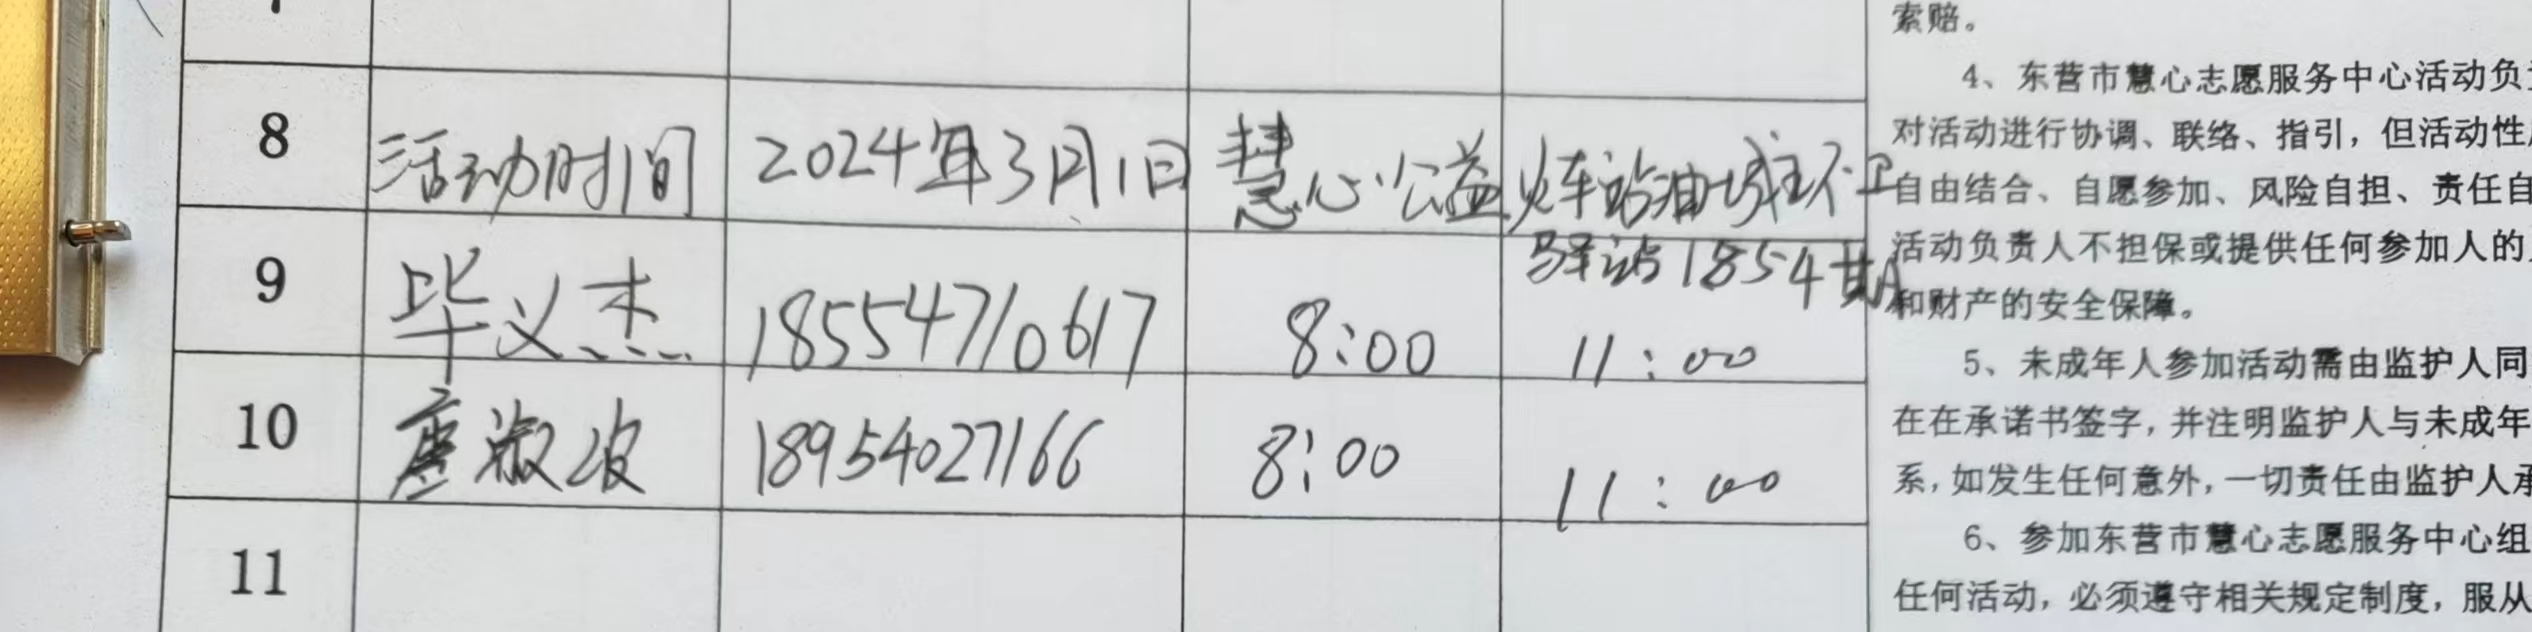 索赔。
4、东营市慧心志愿服务中心活动负
对活动进行协调、联络、指引，但活动性
8 活动时间 2024年3月1日 慧心公益 火车站油城环卫
自由结合、自愿参加、风险自担、责任自
驿站1854期
活动负责人不担保或提供任何参加人的
9 毕义杰 18554710617 8:00 11:00
和财产的安全保障。
5、未成年人参加活动需由监护人同
10 淑波 18954027166 8:00 11:00
在在承诺书签字，并注明监护人与未成年
系，如发生任何意外，一切责任由监护人承
6、参加东营市慧心志愿服务中心组
11
任何活动，必须遵守相关规定制度，服从